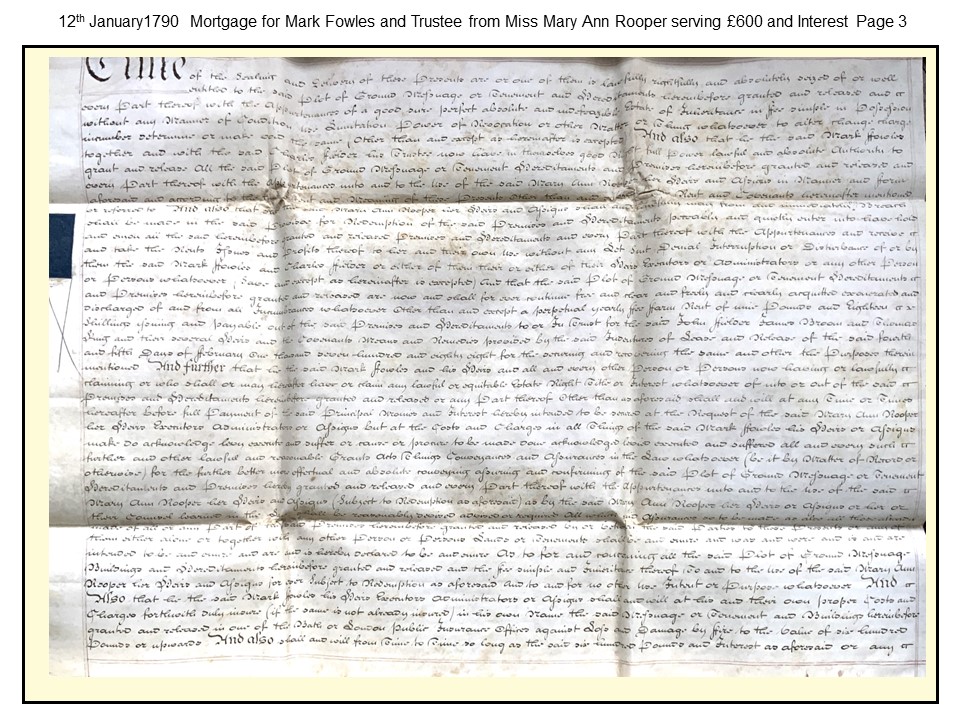 12th January1790 Mortgage for Mark Fowles and Trustee from Miss Mary Ann Rooper serving £600 and Interest Page 3
Time of the Sealing and Delivery of these Presents are or one of them is lawfully rightfully and absolutely seized of or well
entitled to the said Plot of Ground Messuage or Tenement and Hereditaments hereinbefore granted and released and
every Part thereof with the Appurtenances of a good sure perfect absolute and indefeasible Estate of Inheritance in fee simple in Possession
without any Manner of Condition use Limitation Power of Revocation or other Matter or Thing whatsoever to alter change charge
incumber determine or make void the same (Other than and except as hereinafter is excepted) And also that the said Mark Fowles
together and with the said Charles Fielder his Trustee now have in themselves good full Power lawful and absolute Authority to
grant and release All the said Plot of Ground Messuage or Tenement Hereditaments and Premises hereinbefore granted and released and
every Part thereof with the Appurtenances unto and to the Use of the said Mary Ann Heirs and Assigns in Manner and form
aforesaid and according to
or referred to And also that Mary Ann Rooper her Heirs and Assigns shall
shall be made in the said Proviso for Redemption of the said Premises and Hereditaments peaceably and quietly enter into have hold
and enjoy all the said hereinbefore granted and released Premises and Hereditaments and every Part thereof with the Appurtenances and receive
and take the Rents Issues and Profits thereof to her and their own Use without any Let Suit Denial Interruption or Disturbance of or by
them the said Mark Fowles and Charles Fielder or either of them their or either of their Heirs Executors or Administrators or any other Person
or Persons whatsoever (save and except as hereinafter is excepted) And that the said Plot of Ground Messuage or Tenement Hereditaments
and Premises hereinbefore granted and released are now and shall for ever continue free and clear and freely and clearly acquitted exonerated and
discharged of and from all Incumbrances whatsoever Other than and except a perpetual yearly fee farm Rent of nine Pounds and Eighteen
Shillings issuing and payable out of the said Premises and Hereditaments to or In Trust for the said John Fielder James Broom and Thomas
King and their several Heirs and the Covenants Means and Remedies provided by the said Indentures of Lease and Release of the said fourth
and fifth Days of February One thousand seven hundred and eighty eight for the securing and recovering the same and other the Purposes therein
mentioned And further that he the said Mark Fowles and his Heirs and all and every other Person or Persons now having or lawfully
claiming or who shall or may hereafter have or claim any lawful or equitable Estate Right Title or Interest whatsoever of into or out of the said
Premises and Hereditaments hereinbefore granted and released or any Part thereof Other than as aforesaid shall and will at any Time or Times
hereafter before full Payment of the said Principal Monies and Interest hereby intended to be secured at the Request of the said Mary Ann Rooper
her Heirs Executors Administrators or Assigns but at the Costs and Charges in all Things of the said Mark Fowles his Heirs or Assigns
make do acknowledge levy execute and suffer or cause or procure to be made done acknowledged levied executed and suffered all and every such
further and other lawful and reasonable Grants Acts Things Conveyances and Assurances in the Law whatsoever (be it by Matter of Record or
otherwise) for the further better more effectual and absolute conveying assuring and confirming of the said Plot of Ground Messuage or Tenement
Hereditaments and Premises hereby granted and released and every Part thereof with the Appurtenances unto and to the Use of the said
Mary Ann Rooper her Heirs and Assigns (Subject to Redemption as aforesaid) as by the said Mary Ann Rooper her Heirs or Assigns or her or
their Counsel learned in be reasonably devised advised or required All
made of all or any Part of said Premises hereinbefore granted and released by or
them either alone or together with any other Person or Persons Lands or Tenements shall be and enure and was and were and is and are
intended to be and enure and are and is hereby declared to be and enure As to for and concerning all the said Plot of Ground Messuage
Buildings and Hereditaments hereinbefore granted and released and the fee simple and Inheritance thereof To and to the Use of the said Mary Ann
Rooper her Heirs and Assigns for ever Subject to Redemption as aforesaid And to and for no other Use Intent or Purpose whatsoever And
Also that he the said Mark Fowles his Heirs Executors Administrators or Assigns shall and will at his and their own proper Costs and
Charges forthwith duly insure (if the same is not already insured) in his own Name the said Messuage or Tenement and Buildings hereinbefore
granted and released in one of the Bath or London Public Insurance Offices against Loss and Damage by fire to the Value of six hundred
Pounds or upwards And also shall and will from Time to Time so long as the said six hundred Pounds and Interest as aforesaid or any